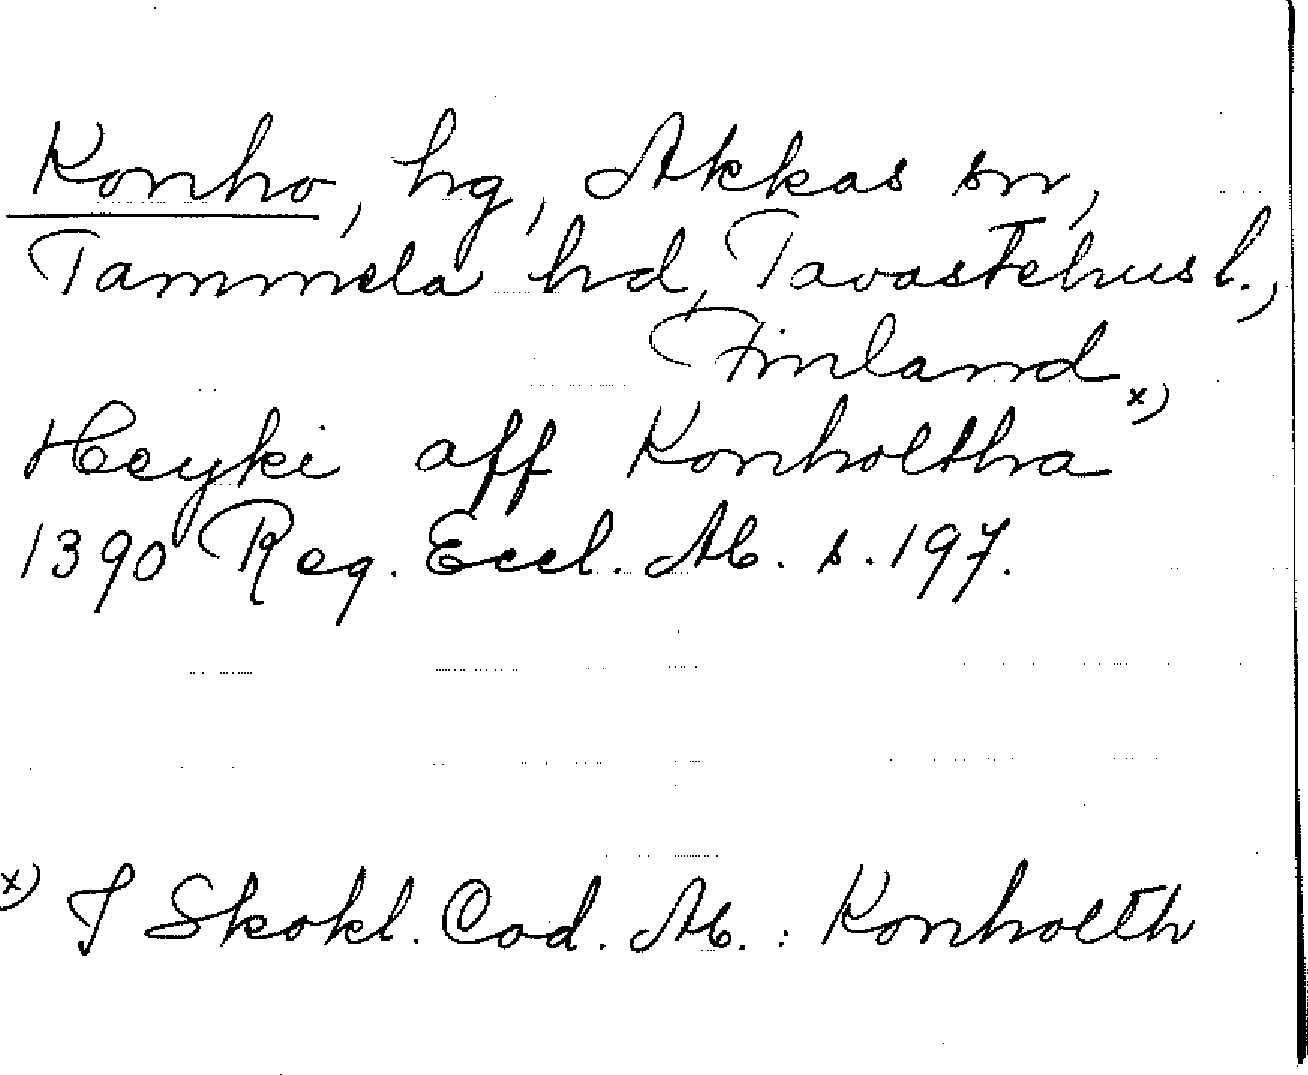 Konho, hg, Akkas sn,
Tammela hd, Tavastehus l.,
Finland
Heyki aff Konholtha x)
1390 Reg. Eccl. Ab. s. 197.
x) I Skokl. Cod. Ab. : Konholth